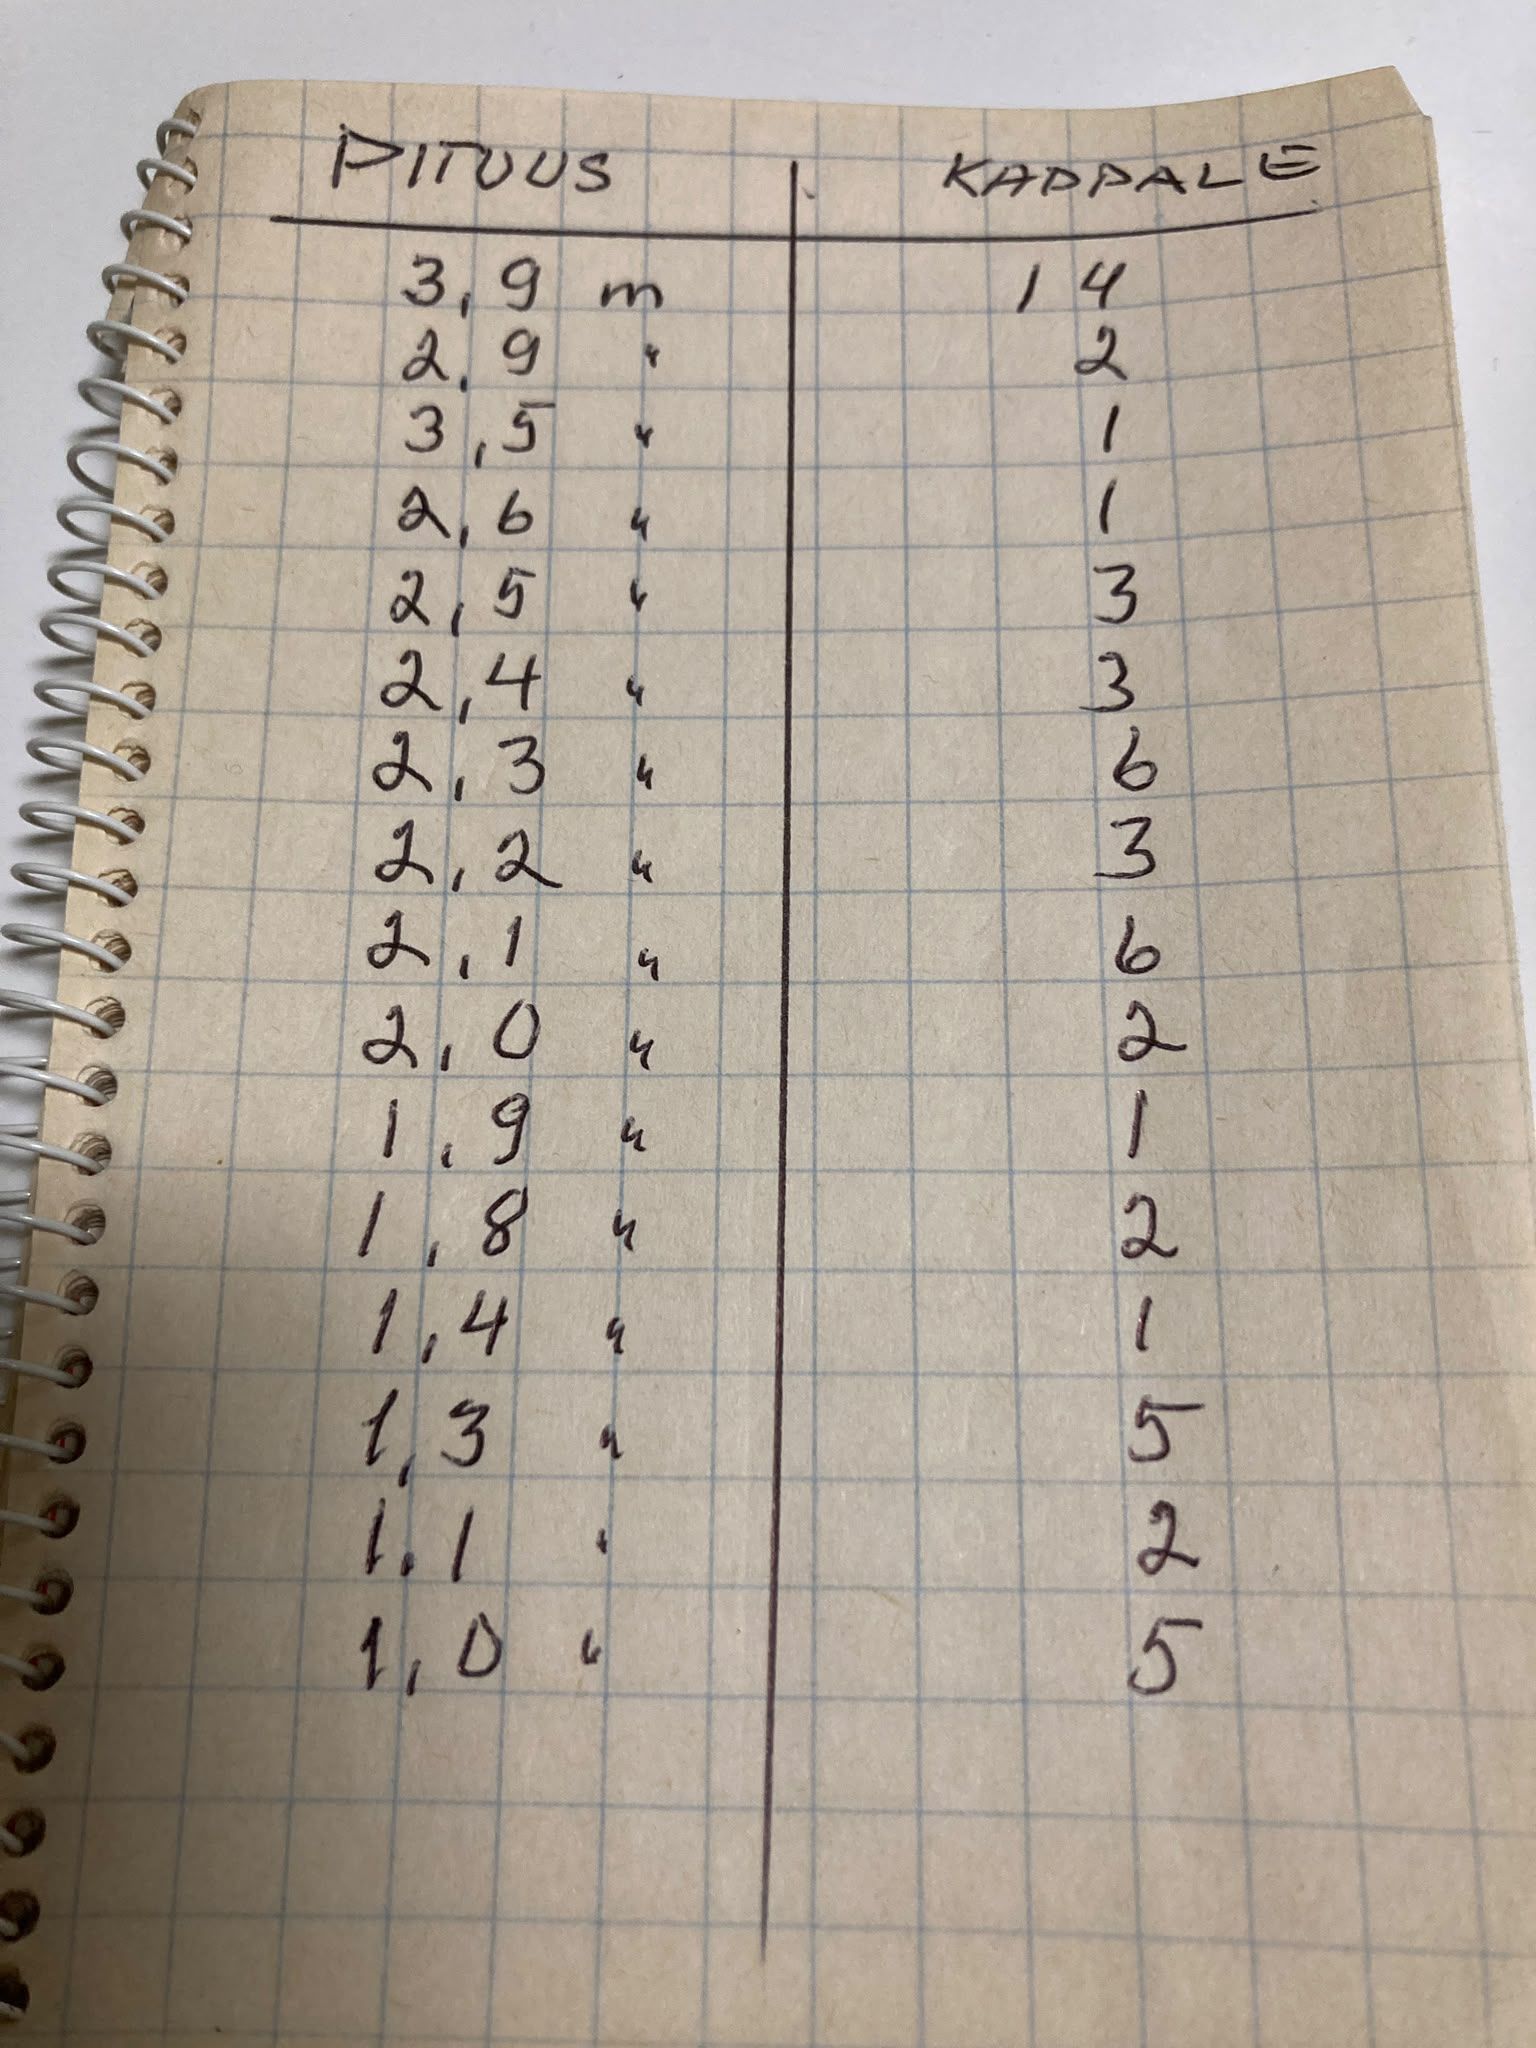 PITUUS KAPPALE
3,9 m 14
2,9 " 2
3,5 " 1
2,6 " 1
2,5 " 3
2,4 " 3
2,3 " 6
2,2 " 3
2,1 " 6
2,0 " 2
1,9 " 1
1,8 " 2
1,4 " 1
1,3 " 5
1,1 " 2
1,0 " 5